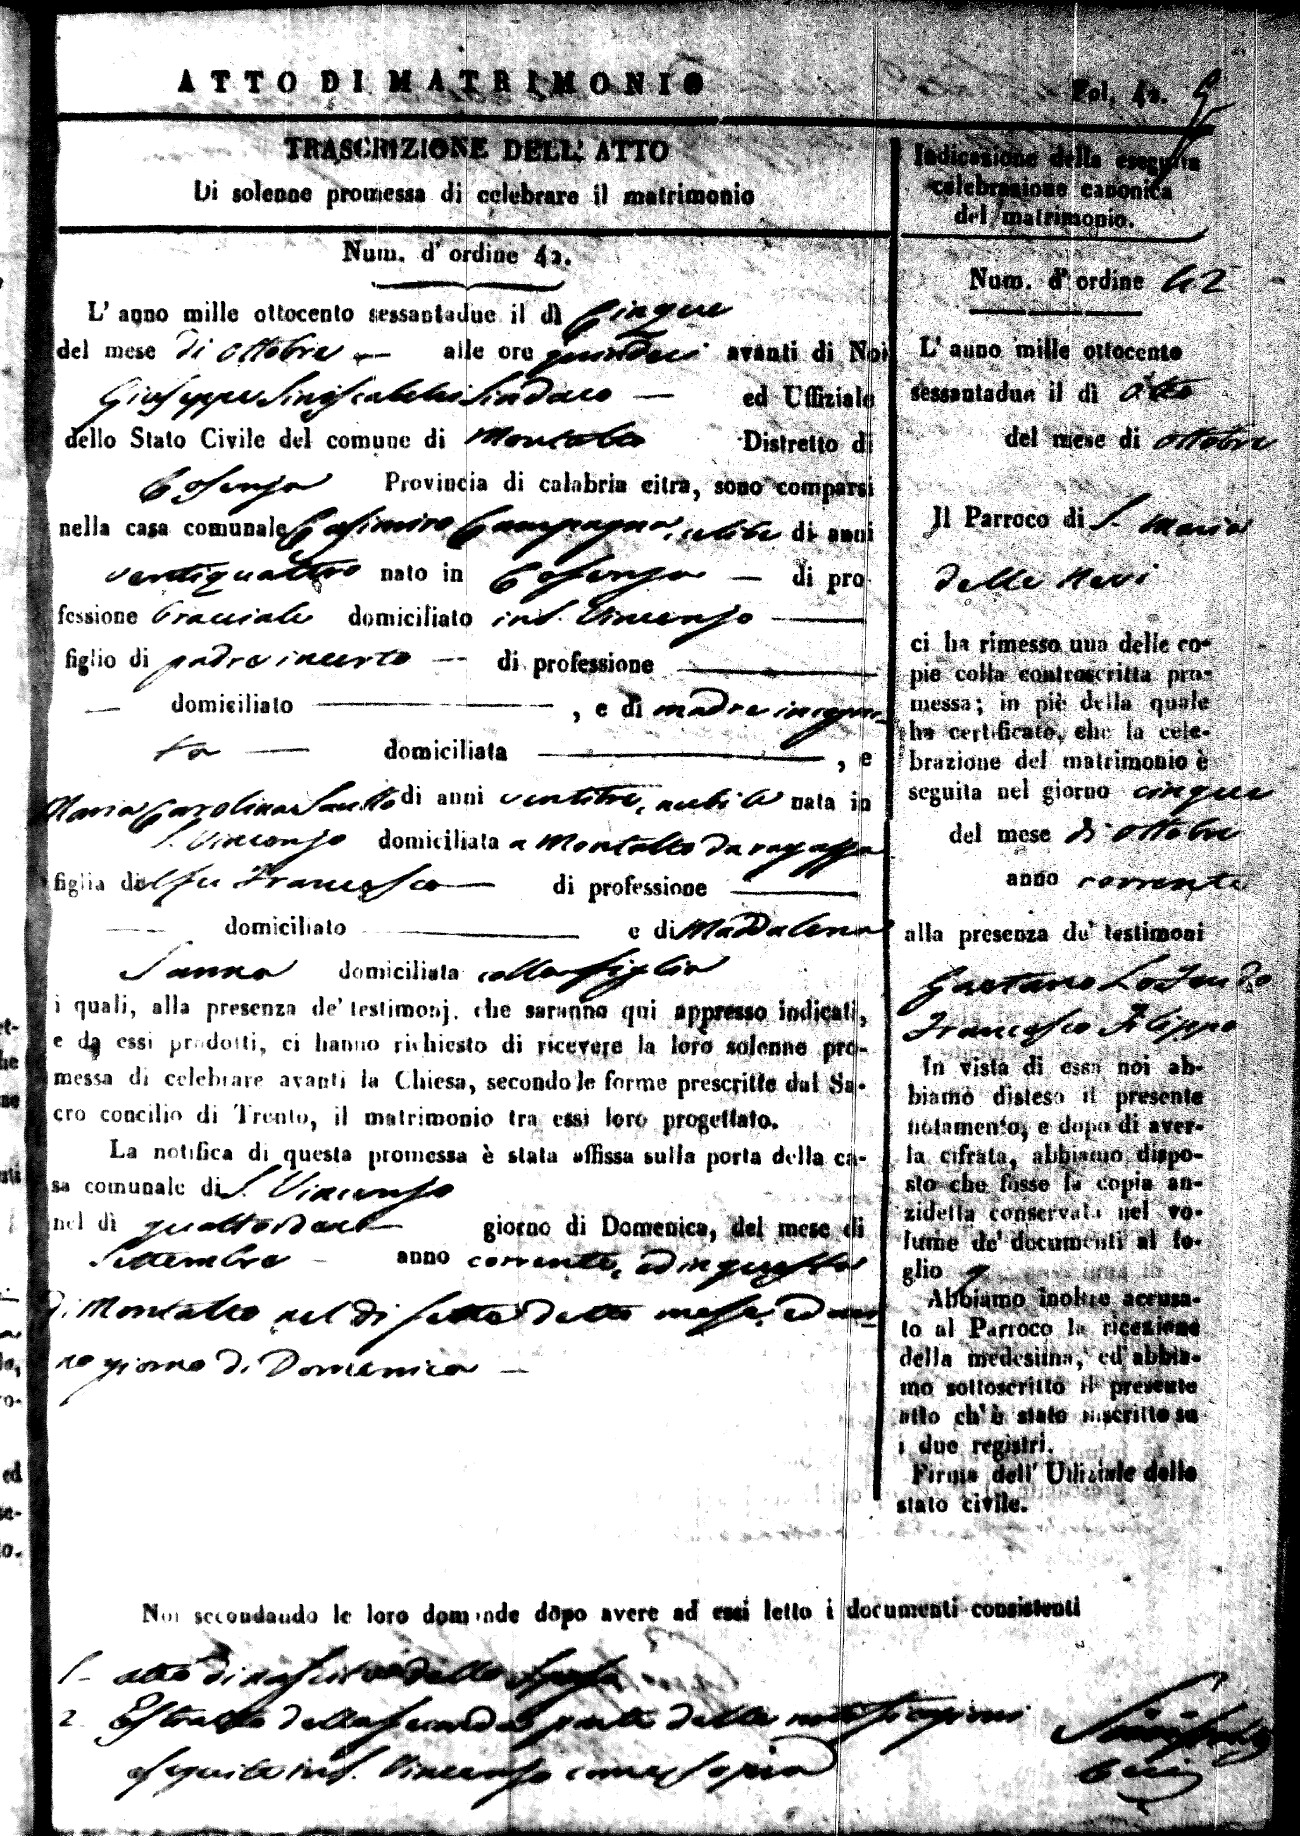 ATTO DI MATRIMONIO
Fol. 42.
TRASCRIZIONE DELL' ATTO
Di solenne promessa di celebrare il matrimonio
Num. d' ordine 42.
L' anno mille ottocento sessantadue il dì Cinque
del mese di ottobre — alle ore quindeci avanti di Noi
Giuseppe Siniscalchi Sindaco — ed Uffiziale
dello Stato Civile del comune di Montalto Distretto di
Cosenza Provincia di calabria citra, sono comparsi
nella casa comunale Casimiro Campagna, celibe di anni
ventiquattro nato in Cosenza — di pro-
fessione bracciale domiciliato in S. Vincenzo —
figlio di padre incerto — di professione —
— domiciliato — , e di madre incer-
ta — domiciliata — , e
Maria Carolina Santo di anni ventitre, nubile nata in
S. Vincenzo domiciliata a Montalto da ragazza
figlia del fu Francesco — di professione —
— domiciliato — e di Maddalena
Sanna domiciliata colla figlia
i quali, alla presenza de' testimonj. che saranno qui appresso indicati,
e da essi prodotti, ci hanno richiesto di ricevere la loro solenne pro-
messa di celebrare avanti la Chiesa, secondo le forme prescritte dal Sa-
cro concilio di Trento, il matrimonio tra essi loro progettato.
La notifica di questa promessa è stata affissa sulla porta della ca-
sa comunale di S. Vincenzo
nel dì quattordici — giorno di Domenica, del mese di
Settembre — anno corrente, ed in quella
di Montalto nel dì sette detto mese, ed an-
no giorno di Domenica —
Noi secondando le loro domande dopo avere ad essi letto i documenti consistenti
1- atto di nascita dello sposo
2. Estratto della seconda parte delle notificazioni
eseguite in S. Vincenzo come sopra
Indicazione della eseguita
celebrazione canonica
del matrimonio.
Num. d' ordine 42
L' anno mille ottocento
sessantadue il dì otto
del mese di ottobre
Il Parroco di S. Maria
delle Nevi
ci ha rimesso una delle co-
pie colla controscritta pro-
messa; in piè della quale
ha certificato, che la cele-
brazione del matrimonio è
seguita nel giorno cinque
del mese di ottobre
anno corrente
alla presenza de' testimoni
Gaetano
Francesco Filippo
In vista di essa noi ab-
biamo disteso il presente
notamento, e dopo di aver-
la cifrata, abbiamo dispo-
sto che fosse la copia an-
zidetta conservata nel vo-
lume de' documenti al fo-
glio
Abbiamo inoltre accusa-
to al Parroco la ricezione
della medesima, ed abbia-
mo sottoscritto il presente
atto ch' è stato inscritto su
i due registri.
Firma dell' Uffiziale dello
stato civile.